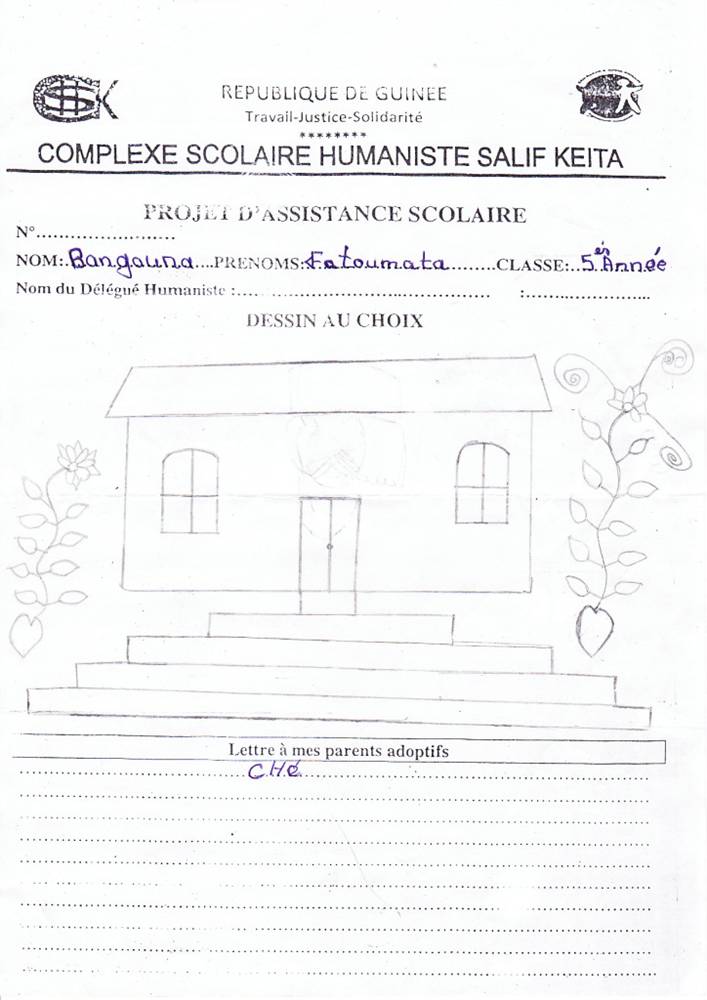 REPUBLIQUE DE GUINEE
Travail-Justice-Solidarité
********
COMPLEXE SCOLAIRE HUMANISTE SALIF KEITA
PROJET D'ASSISTANCE SCOLAIRE
N°.......................
NOM:.Bangouna....PRENOMS:Fatoumata.........CLASSE:..5èr Année
Nom du Délégué Humaniste :............................................... :......................
DESSIN AU CHOIX
Lettre à mes parents adoptifs
CHé